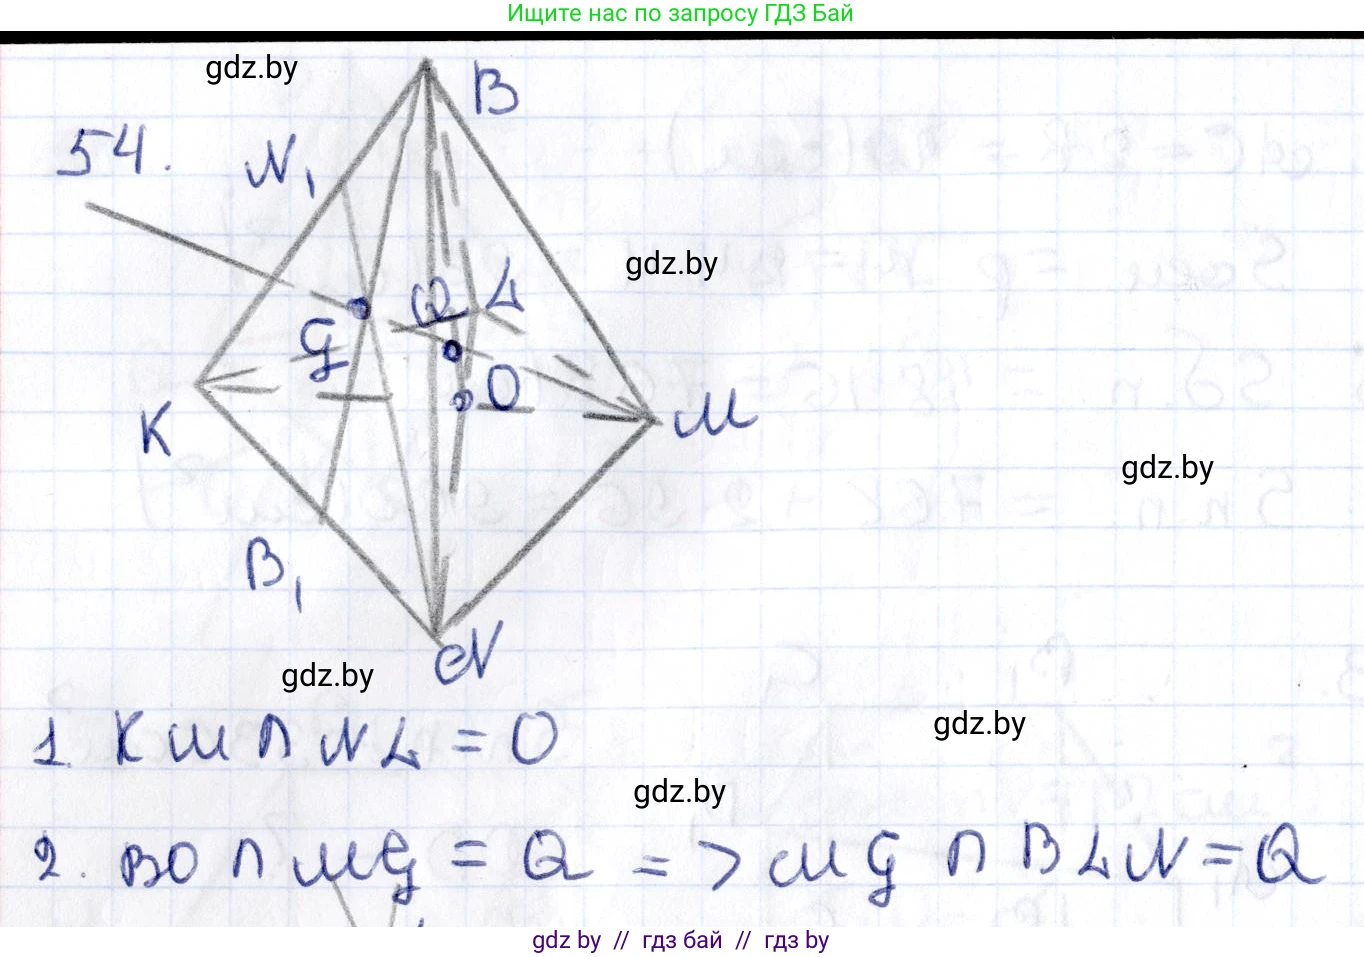 Ищите нас по запросу ГДЗ Бай
gdz.by
B
54. N₁
gdz.by
Q L
G
O
K M
gdz.by
B₁
N
gdz.by
1. KM ∩ NL = O
gdz.by
gdz.by
2. BO ∩ MG = Q => MG ∩ BLN = Q
gdz.by // гдз бай // гдз by